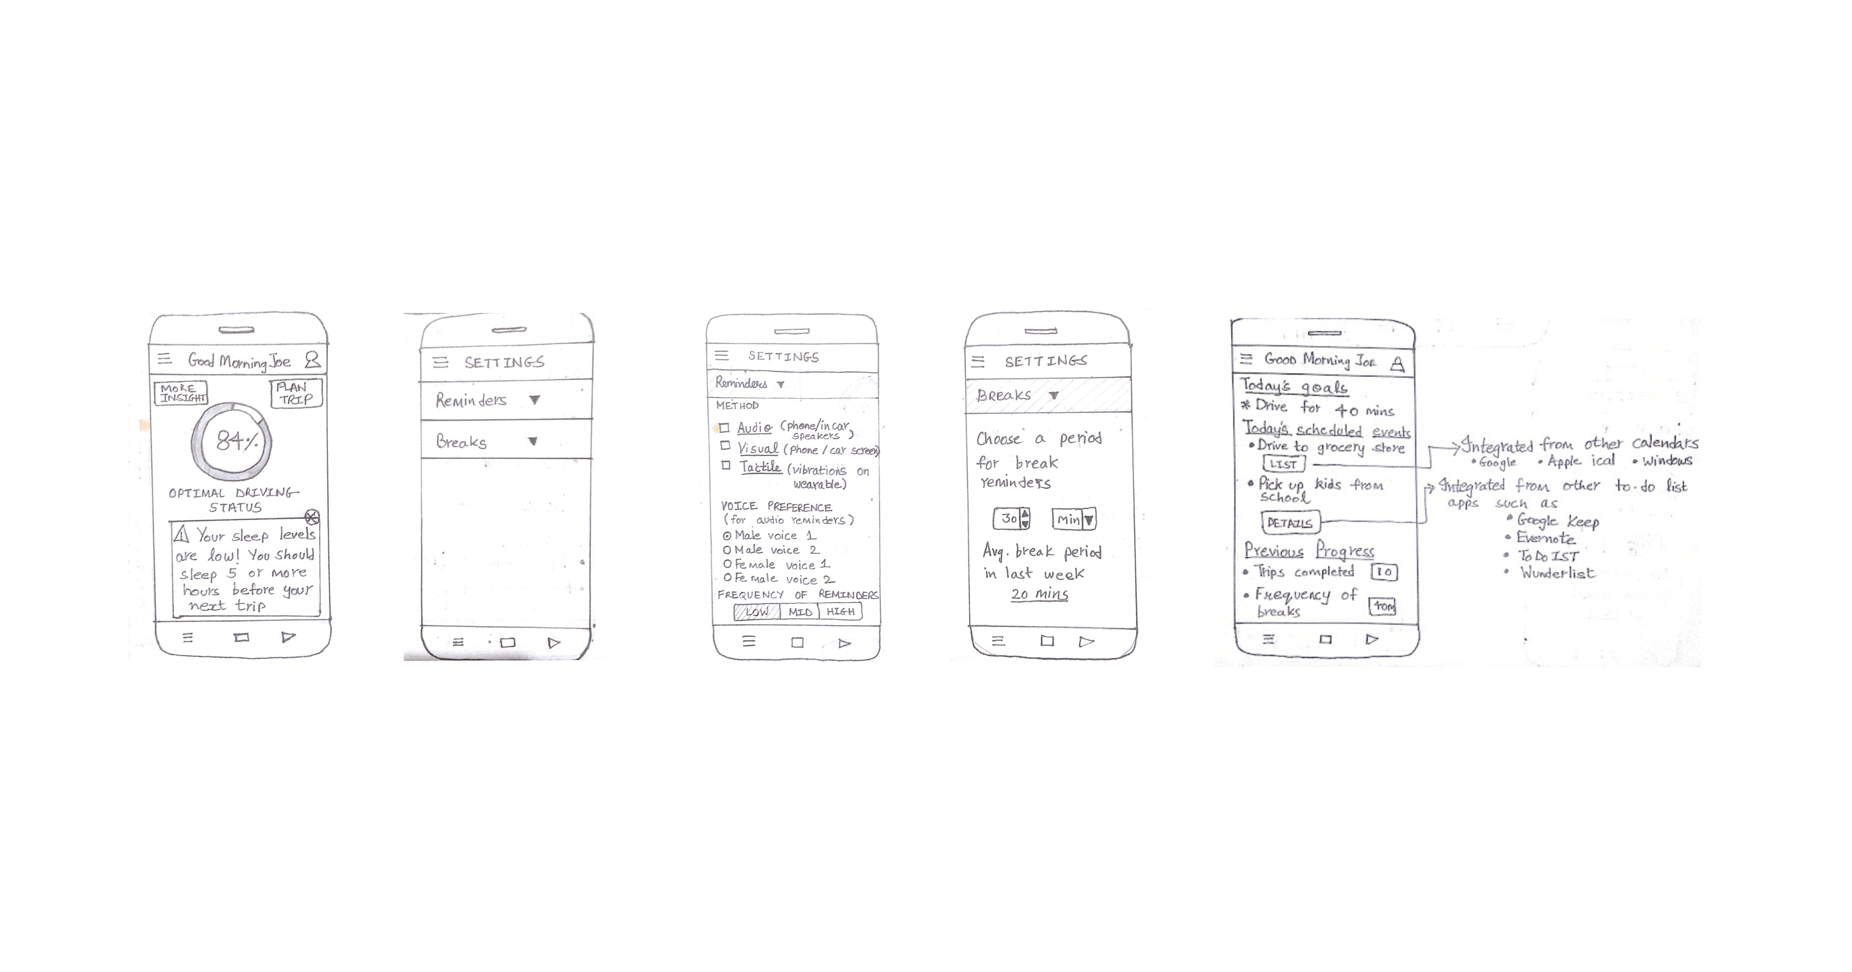 Good Morning Joe
MORE
INSIGHT
PLAN
TRIP
84%
OPTIMAL DRIVING
STATUS
Your sleep levels
are low! You should
sleep 5 or more
hours before your
next trip
SETTINGS
Reminders
Breaks
SETTINGS
Reminders
METHOD
Audio (phone/in car
speakers)
Visual (phone / car screen)
Tactile (vibrations on
wearable)
VOICE PREFERENCE
(for audio reminders)
Male voice 1
Male voice 2
Female voice 1
Female voice 2
FREQUENCY OF REMINDERS
LOW MID HIGH
SETTINGS
BREAKS
Choose a period
for break
reminders
30 min
Avg. break period
in last week
20 mins
Good Morning Joe
Today's goals
* Drive for 40 mins
Today's scheduled events
• Drive to grocery store
LIST
• Pick up kids from
school
DETAILS
Previous Progress
• Trips completed 10
• Frequency of
breaks 40m
Integrated from other calendars
• Google • Apple ical • Windows
Integrated from other to-do list
apps such as
• Google Keep
• Evernote
• To Do IST
• Wunderlist